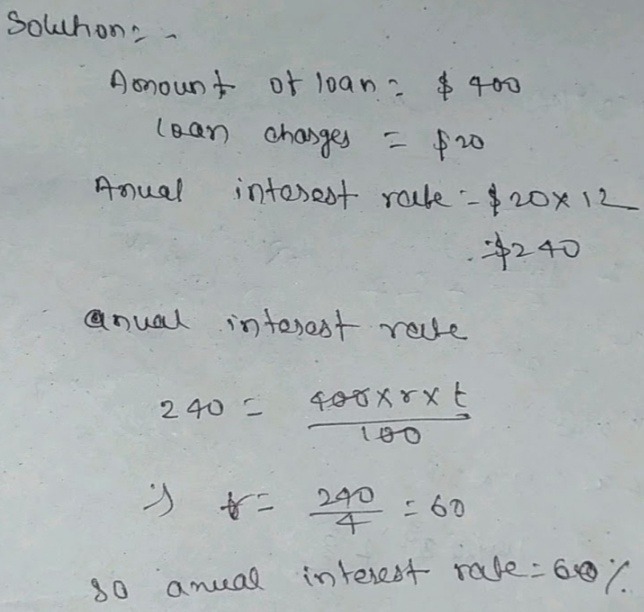 Solution:-
Amount of loan = $ 400
loan charges = $20
Anual interest rate = $20 x 12
= $240
anual interest rate
240 = 400 x r x t
100
⇒ r = 240 = 60
4
so anual interest rate = 60%